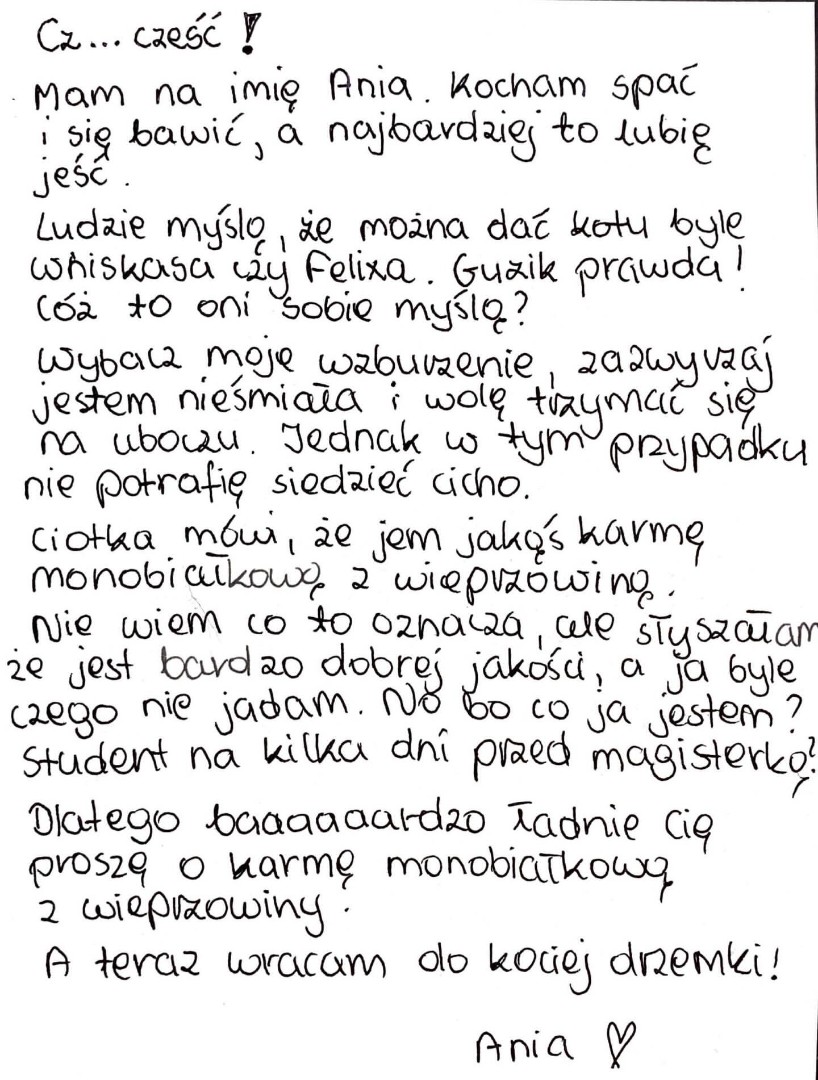 Cz... cześć!
Mam na imię Ania. Kocham spać
i się bawić, a najbardziej to lubię
jeść.
Ludzie myślą, że można dać kotu byle
whiskasa czy Felixa. Guzik prawda!
Cóż to oni sobie myślą?
Wybacz moje wzburzenie, zazwyczaj
jestem nieśmiała i wolę trzymać się
na uboczu. Jednak w tym przypadku
nie potrafię siedzieć cicho.
Ciotka mówi, że jem jakąś karmę
monobiałkową z wieprzowiną.
Nie wiem co to oznacza, ale słyszałam
że jest bardzo dobrej jakości, a ja byle
czego nie jadam. No bo co ja jestem?
Student na kilka dni przed magisterką?
Dlatego baaaaaardzo ładnie Cię
proszę o karmę monobiałkową
z wieprzowiny.
A teraz wracam do kociej drzemki!
Ania ♡